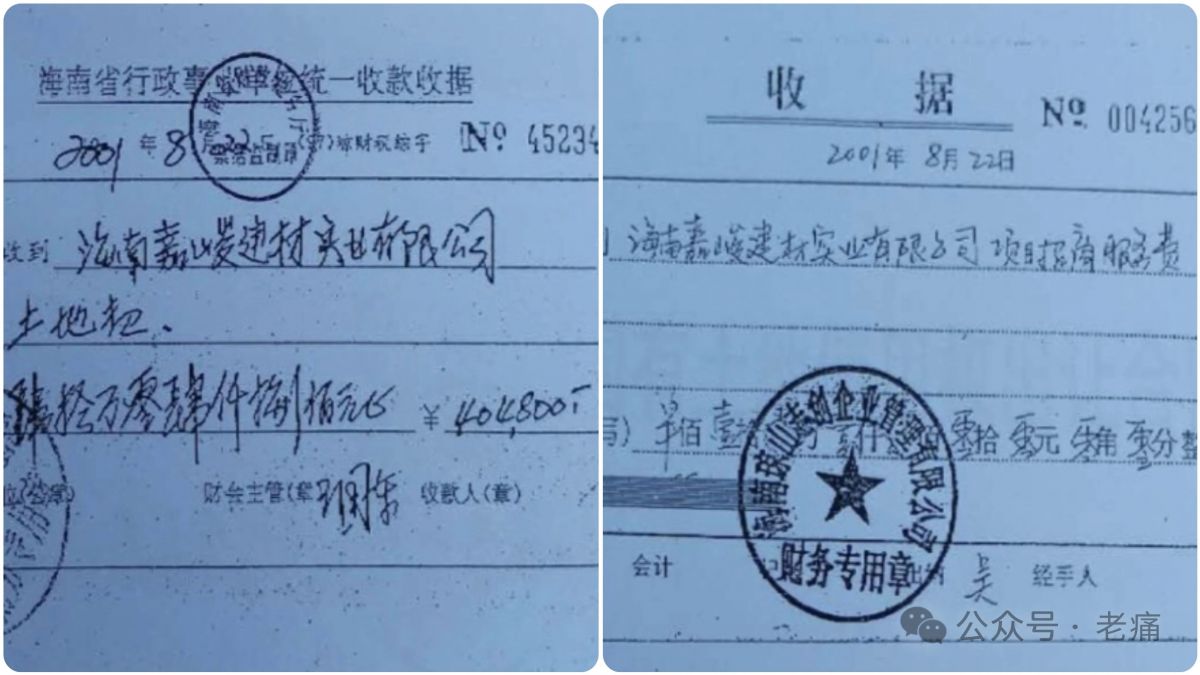 海南省行政事业单位统一收款收据
2001 年 8 22 财税综字 No 45234
收到 海南嘉峻建材实业有限公司
土地款.
肆拾万零肆仟捌佰元 ¥ 404,800.-
财会主管(章 收款人(章)
收 据
No 004256
2001年 8月22日
海南嘉峻建材实业有限公司项目招商服务费
佰 壹 仟 零拾 零元 零角 零分整
企业管理有限公司
财务专用章
会计 吴 经手人
公众号·老痛